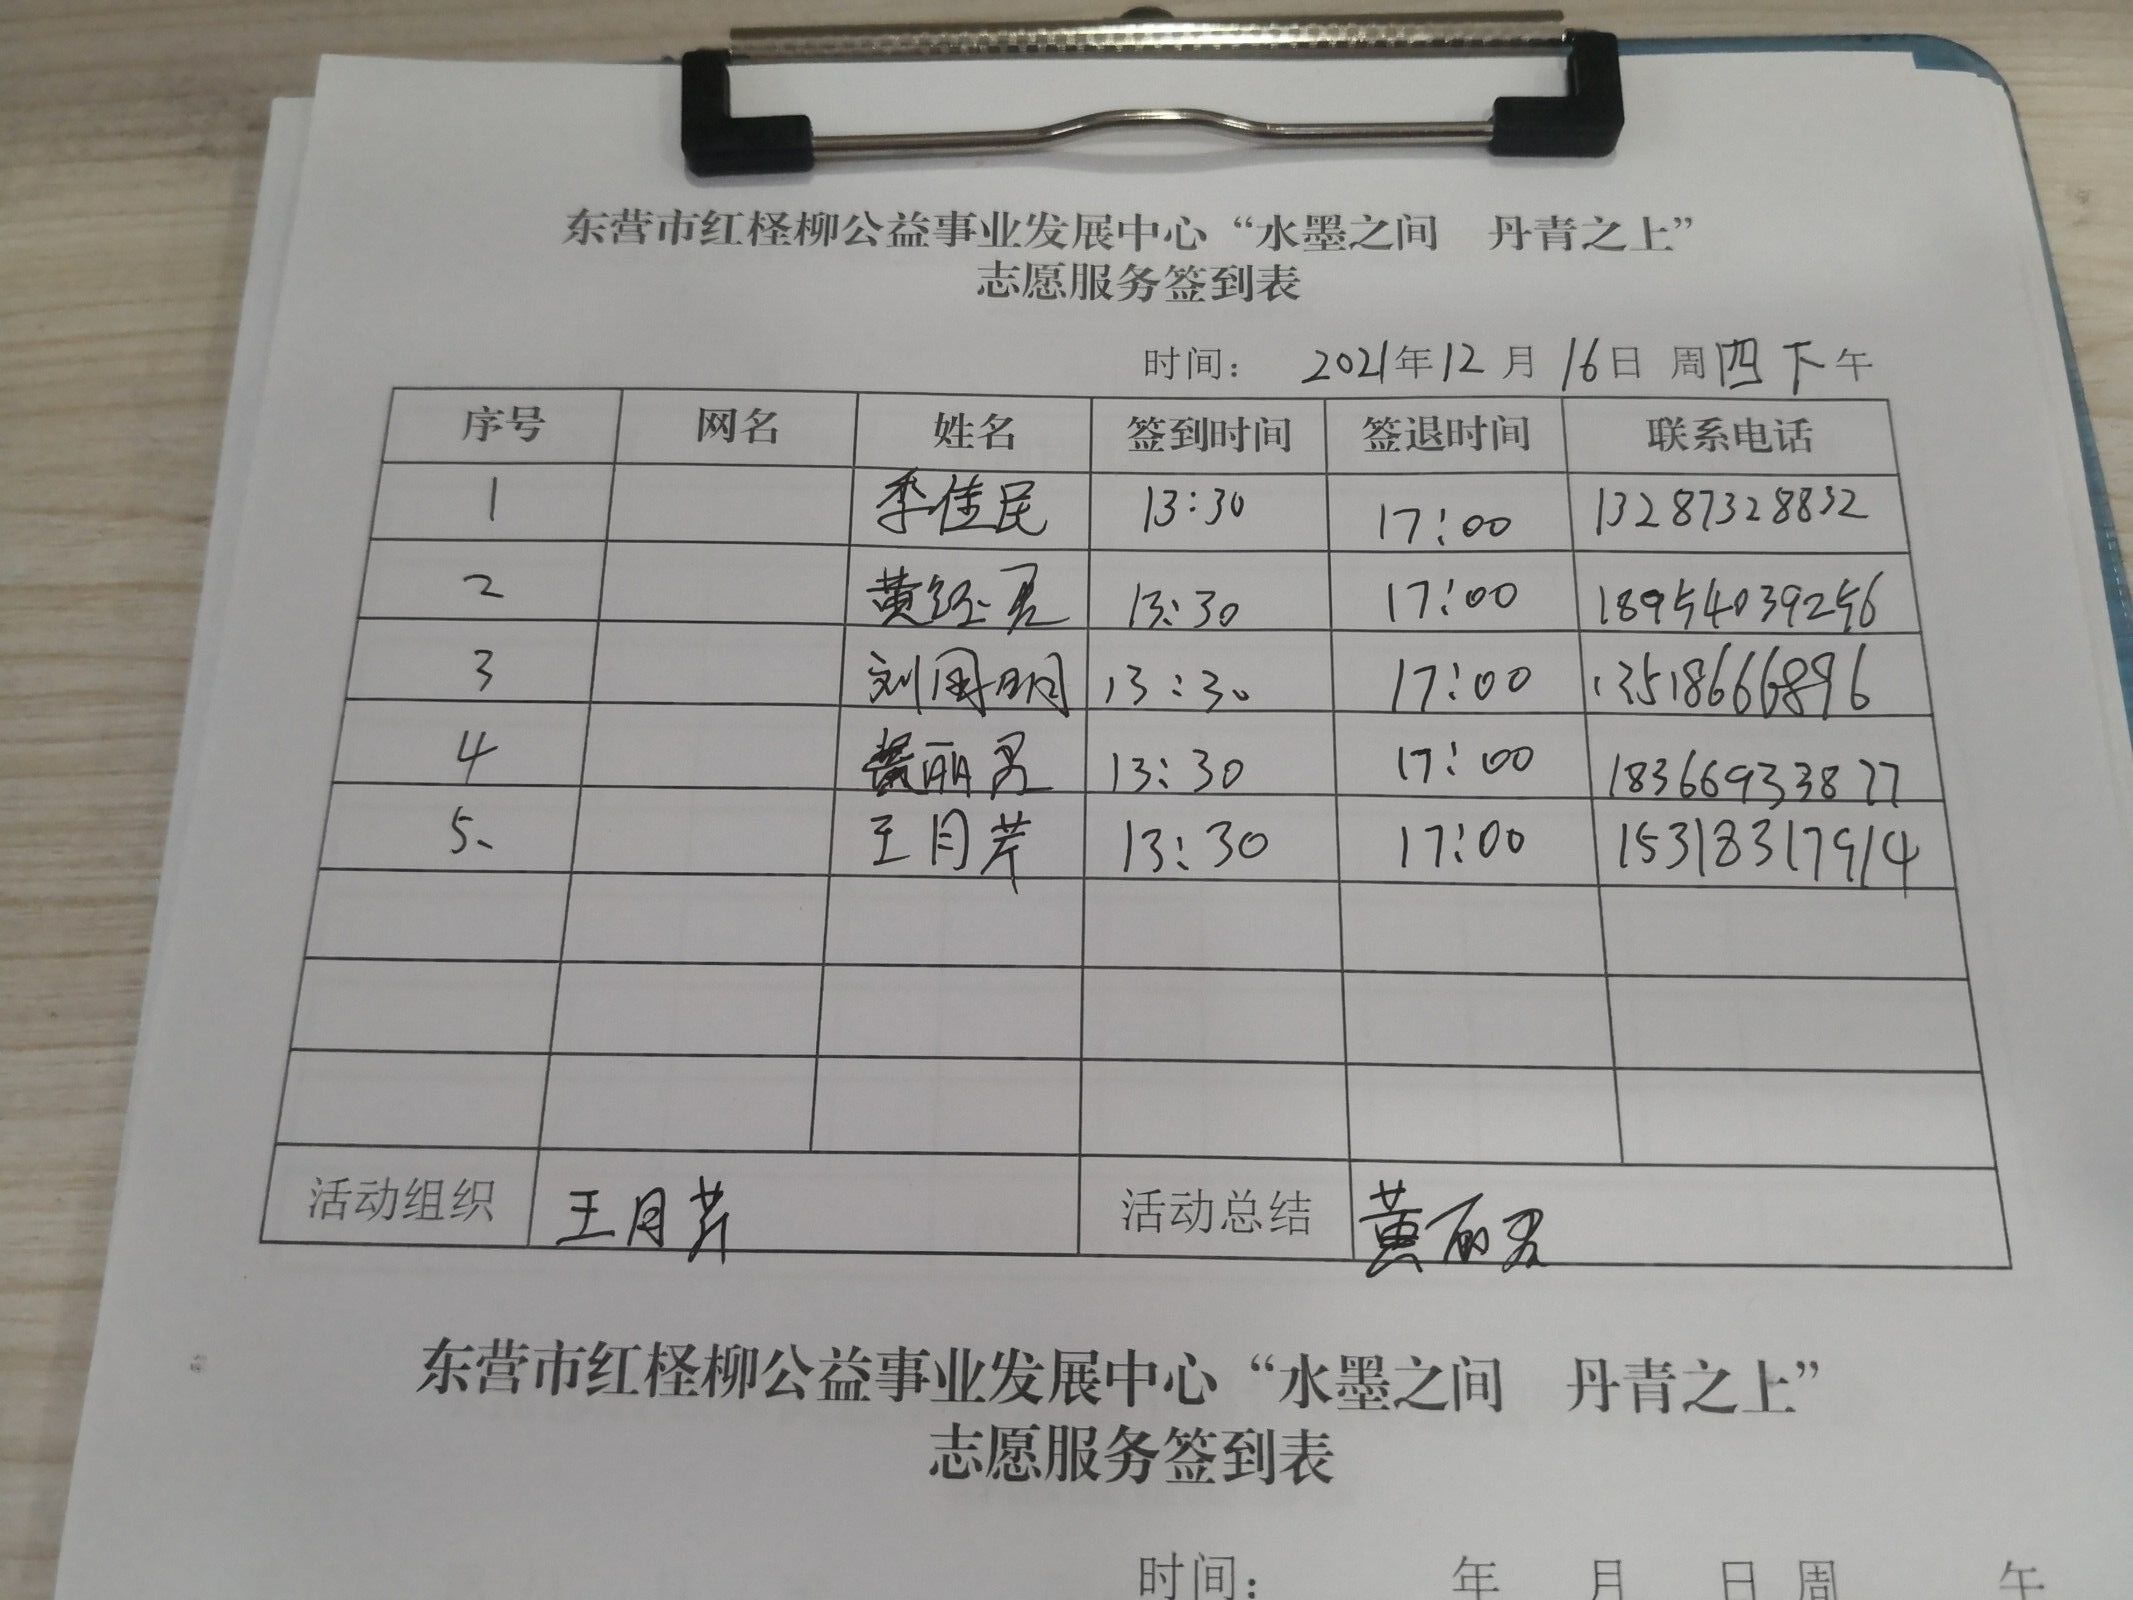 东营市红柽柳公益事业发展中心“水墨之间 丹青之上”
志愿服务签到表
时间： 2021年12月16日 周四下午
序号 网名 姓名 签到时间 签退时间 联系电话
1 季佳民 13:30 17:00 13287328832
2 黄 13:30 17:00 18954039256
3 刘国明 13:30 17:00 13518666896
4 黄丽君 13:30 17:00 18366933877
5、 王月芹 13:30 17:00 15318317914
活动组织 王月芹 活动总结 黄丽君
东营市红柽柳公益事业发展中心“水墨之间 丹青之上”
志愿服务签到表
时间： 年 月 日 周 午